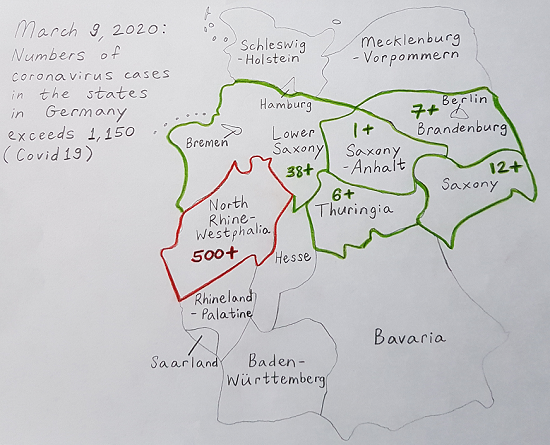 March 9, 2020:
Numbers of
coronavirus cases
in the states
in Germany
exceeds 1,150
(Covid19)
Schleswig
-Holstein
Mecklenburg
-Vorpommern
Hamburg
Bremen
Lower
Saxony
38+
1+
Saxony
-Anhalt
7+
Berlin
Brandenburg
12+
Saxony
6+
Thuringia
North
Rhine-
Westphalia
500+
Hesse
Rhineland
-Palatine
Saarland
Baden-
Württemberg
Bavaria